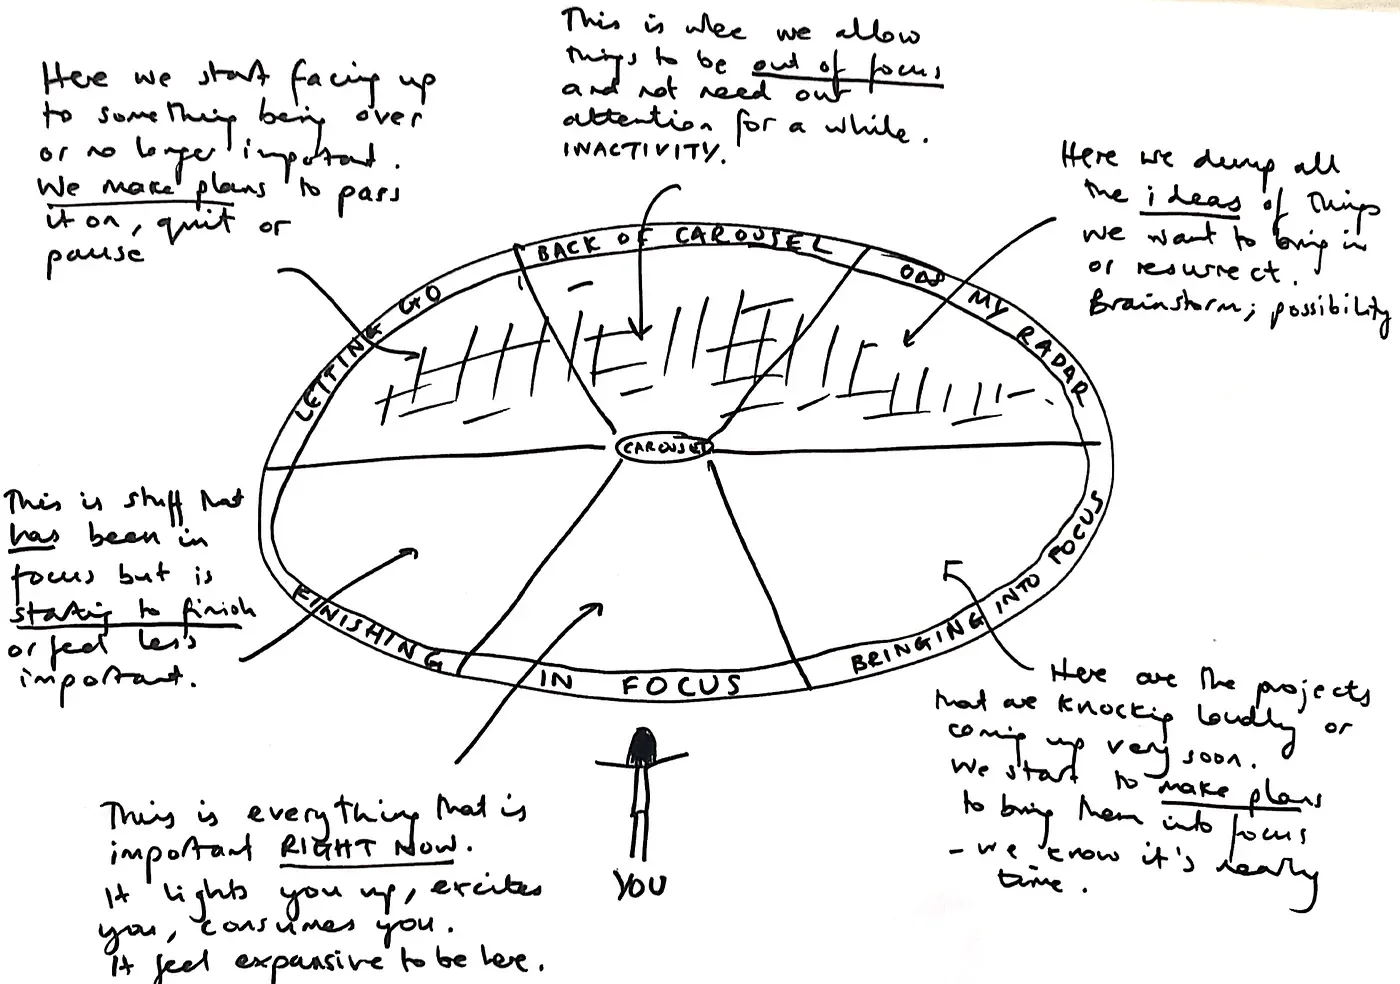 This is whee we allow
things to be out of focus
and not need our
attention for a while.
INACTIVITY.
Here we start facing up
to something being over
or no longer important.
We make plans to pass
it on, quit or
pause
Here we dump all
the ideas of things
we want to bring in
or resurrect.
Brainstorm; possibility
LETTING GO
BACK OF CAROUSEL
ON MY RADAR
CAROUSEL
This is stuff that
has been in
focus but is
starting to finish
or feel less
important.
FINISHING
IN FOCUS
BRINGING INTO FOCUS
Here are the projects
that are knocking loudly or
coming up very soon.
We start to make plans
to bring them into focus
- we know it's nearly
time.
This is everything that is
important RIGHT NOW.
It lights you up, excites
you, consumes you.
It feel expansive to be here.
YOU